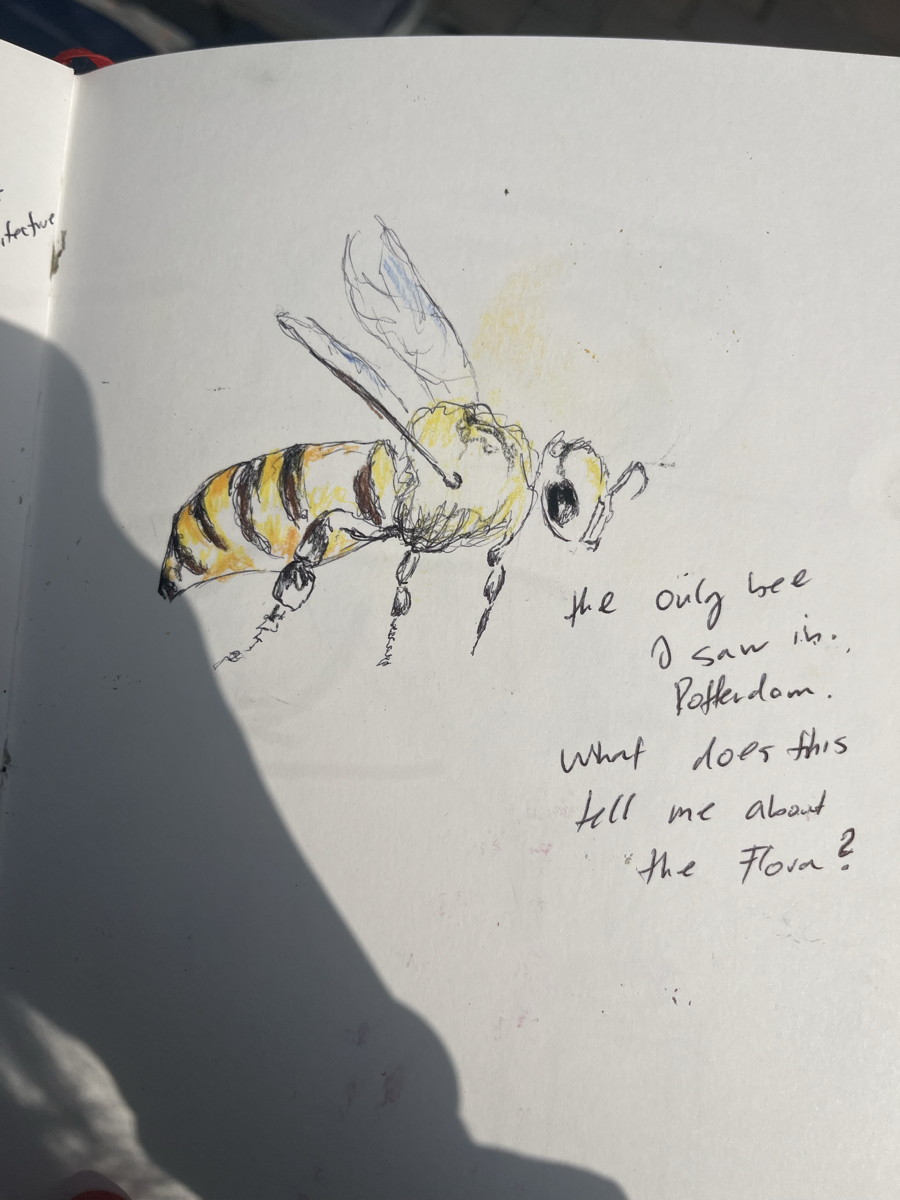 itecture
the only bee
I saw in.
Rotterdam.
What does this
tell me about
the Flora?